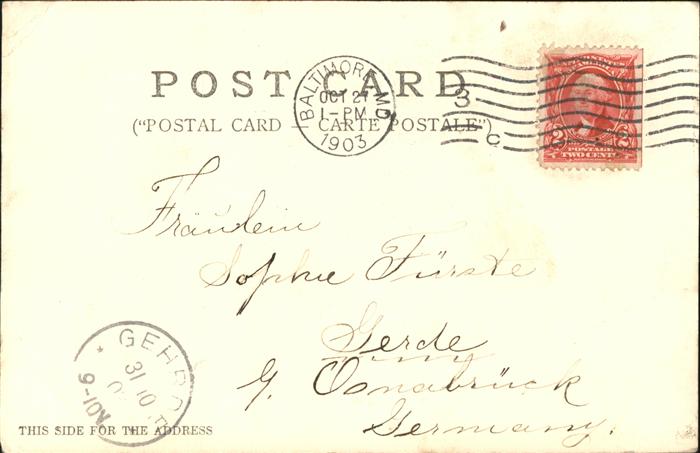 POST CARD
("POSTAL CARD — CARTE POSTALE")
BALTIMORE, MD.
OCT 27
1-PM
1903
3
C
2 2
POSTAGE
TWO CENTS
Fräulein
Sophie Fürste
Gerde
g. Osnabrück
Germany.
31 10
THIS SIDE FOR THE ADDRESS